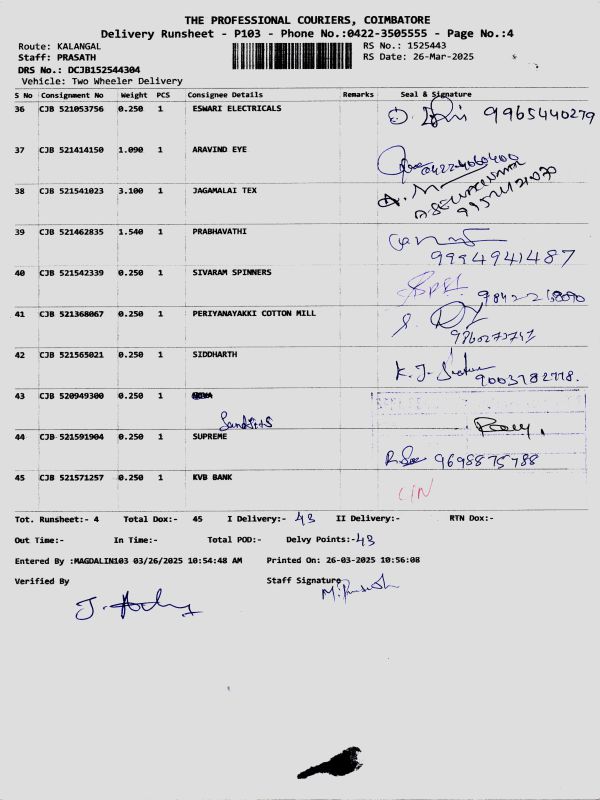 THE PROFESSIONAL COURIERS, COIMBATORE
Delivery Runsheet - P103 - Phone No.:0422-3505555 - Page No.:4
Route: KALANGAL RS No.: 1525443
Staff: PRASATH RS Date: 26-Mar-2025
DRS No.: DCJB152544304
Vehicle: Two Wheeler Delivery
S No Consignment No Weight PCS Consignee Details Remarks Seal & Signature
36 CJB 521053756 0.250 1 ESWARI ELECTRICALS 9965440279
37 CJB 521414150 1.090 1 ARAVIND EYE 0422-4060400
38 CJB 521541023 3.100 1 JAGAMALAI TEX
39 CJB 521462835 1.540 1 PRABHAVATHI
9994941487
40 CJB 521542339 0.250 1 SIVARAM SPINNERS
41 CJB 521368067 0.250 1 PERIYANAYAKKI COTTON MILL
42 CJB 521565021 0.250 1 SIDDHARTH K. J.
9003782778.
43 CJB 520949300 0.250 1
44 CJB 521591904 0.250 1 SUPREME
9698875788
45 CJB 521571257 0.250 1 KVB BANK
Tot. Runsheet:- 4 Total Dox:- 45 I Delivery:- 43 II Delivery:- RTN Dox:-
Out Time:- In Time:- Total POD:- Delvy Points:-43
Entered By :MAGDALIN103 03/26/2025 10:54:48 AM Printed On: 26-03-2025 10:56:08
Verified By Staff Signature